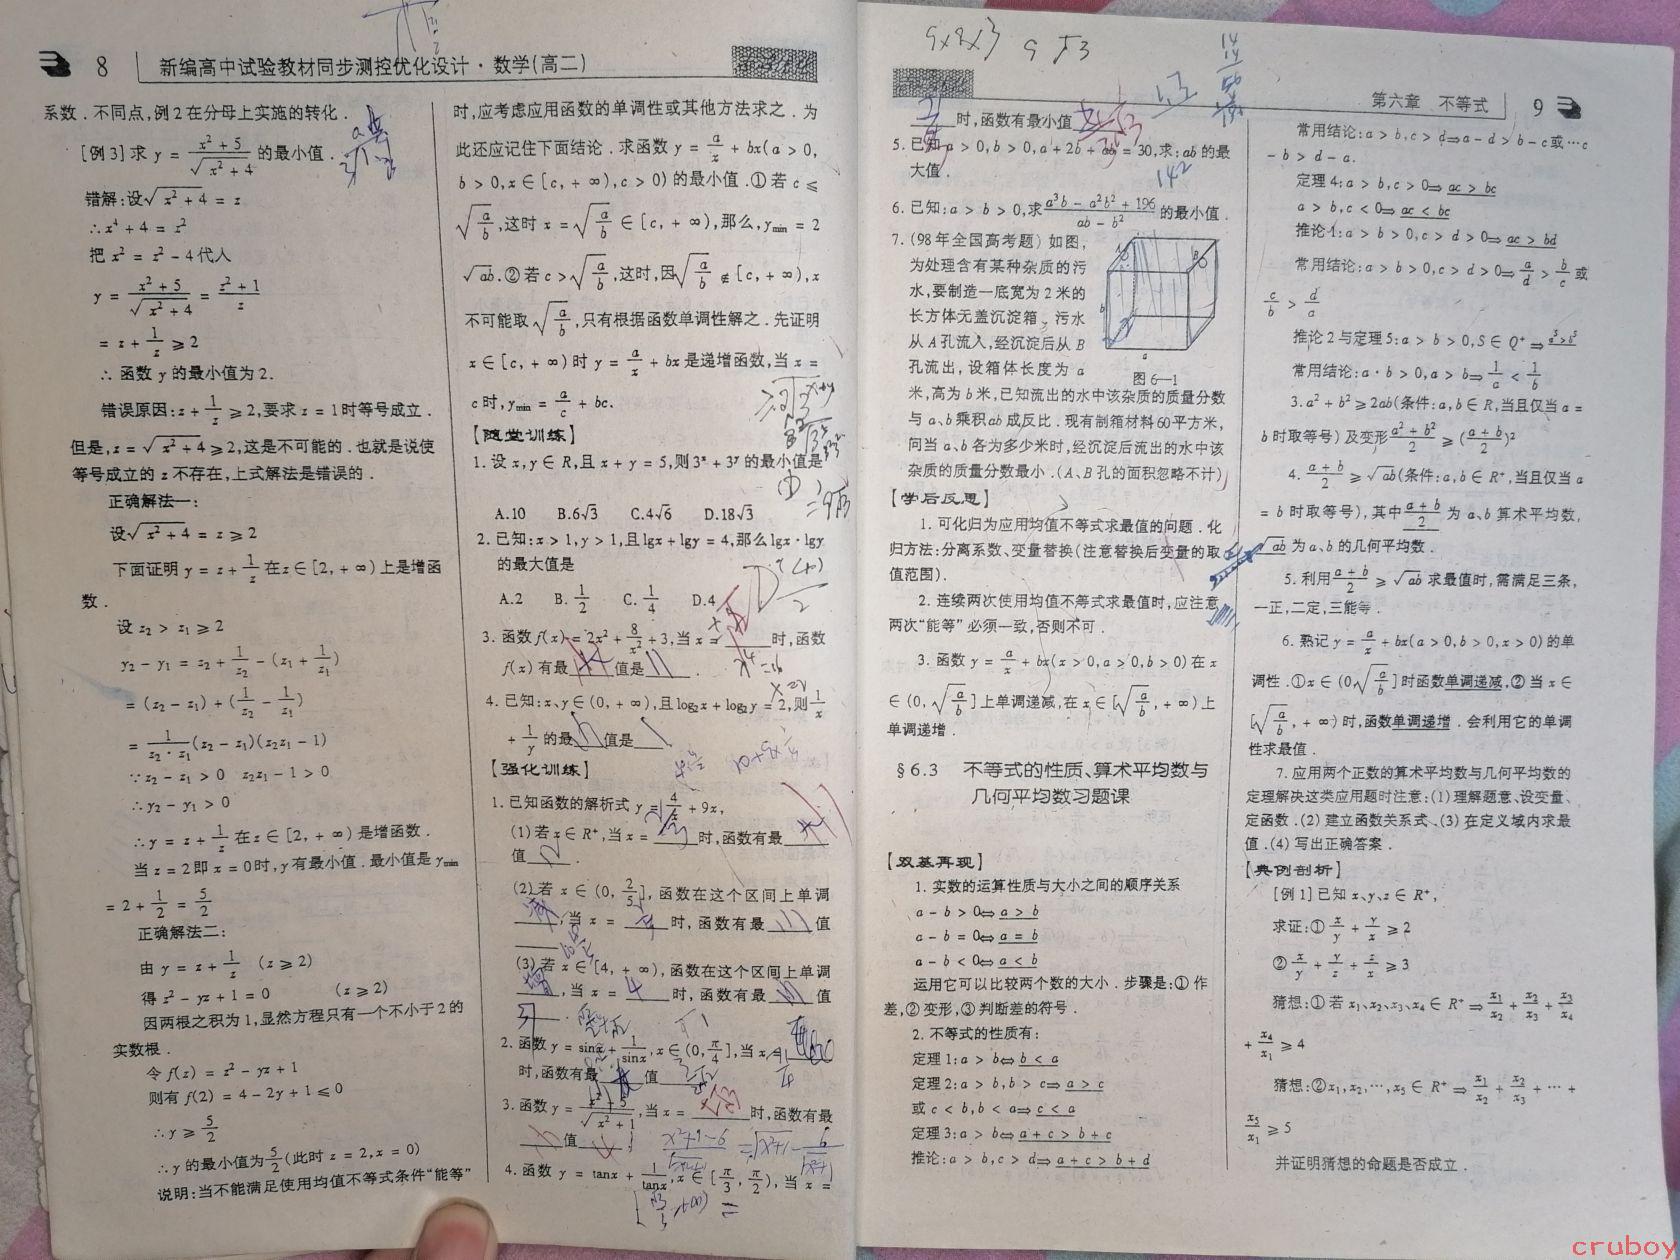 8 新编高中试验教材同步测控优化设计·数学(高二)
系数．不同点,例2在分母上实施的转化．
[例3]求 y = (x² + 5)/√(x² + 4) 的最小值．
错解:设√(x² + 4) = z
∴x⁴ + 4 = z²
把 x² = z² − 4代人
y = (x² + 5)/√(x² + 4) = (z² + 1)/z
= z + 1/z ⩾ 2
∴ 函数 y 的最小值为2.
错误原因:z + 1/z ⩾ 2,要求 z = 1时等号成立．
但是,z = √(x² + 4) ⩾ 2,这是不可能的．也就是说使
等号成立的 z 不存在,上式解法是错误的．
正确解法一:
设√(x² + 4) = z ⩾ 2
下面证明 y = z + 1/z 在 z ∈ [2, + ∞)上是增函
数．
设 z₂ > z₁ ⩾ 2
y₂ − y₁ = z₂ + 1/z₂ − (z₁ + 1/z₁)
= (z₂ − z₁) + (1/z₂ − 1/z₁)
= 1/(z₂·z₁)(z₂ − z₁)(z₂z₁ − 1)
∵z₂ − z₁ > 0 z₂z₁ − 1 > 0
∴y₂ − y₁ > 0
∴y = z + 1/z 在 z ∈ [2, + ∞) 是增函数．
当 z = 2即 x = 0时,y 有最小值．最小值是 ymin
= 2 + 1/2 = 5/2
正确解法二:
由 y = z + 1/z (z ⩾ 2)
得 z² − yz + 1 = 0 (z ⩾ 2)
因两根之积为1,显然方程只有一个不小于2的
实数根．
令 f(z) = z² − yz + 1
则有 f(2) = 4 − 2y + 1 ⩽ 0
∴y ⩾ 5/2
∴y 的最小值为5/2(此时 z = 2,x = 0)
说明:当不能满足使用均值不等式条件“能等”
时,应考虑应用函数的单调性或其他方法求之．为
此还应记住下面结论．求函数 y = a/x + bx(a > 0,
b > 0,x ∈ [c, + ∞),c > 0)的最小值.①若 c ⩽
√(a/b),这时 x = √(a/b) ∈ [c, + ∞),那么,ymin = 2
√ab.②若 c > √(a/b),这时,因√(a/b) ∉ [c, + ∞),x
不可能取√(a/b),只有根据函数单调性解之．先证明
x ∈ [c, + ∞)时 y = a/x + bx 是递增函数,当 x =
c 时,ymin = a/c + bc.
【随堂训练】
1.设 x,y ∈ R,且 x + y = 5,则3ˣ + 3ʸ 的最小值是
( D )
A.10 B.6√3 C.4√6 D.18√3
2.已知:x > 1,y > 1,且lgx + lgy = 4,那么lgx·lgy
的最大值是
A.2 B. 1/2 C. 1/4 D.4
3.函数 f(x) = 2x² + 8/x² + 3,当 x = ____时,函数
f(x) 有最____值是 11 .
4.已知:x、y ∈ (0, + ∞),且log₂x + log₂y = 2,则1/x
+ 1/y 的最 小 值是 1
【强化训练】
1.已知函数的解析式 y = 4/x + 9x,
(1)若 x ∈ R⁺,当 x = ____时,函数有最____
值 12 ．
(2)若 x ∈ (0, 2/5], 函数在这个区间上单调
减 ,当 x = ____时, 函数有最 小 值
(3)若 x ∈ [4, + ∞), 函数在这个区间上单调
增 ,当 x = 4 时, 函数有最 小 值
37
2.函数 y = sinx + 1/sinx,x ∈ (0, π/4],当 x = ____
时,函数有最____值
3.函数 y = (x² + 5)/√(x² + 1),当 x = ____时,函数有最
____值____;
4.函数 y = tanx + 1/tanx,x ∈ [π/3, π/2), 当 x =
第六章 不等式 9
____时,函数有最小值____
5.已知 a > 0,b > 0,a + 2b + ab = 30,求:ab 的最
大值．
6.已知:a > b > 0,求(a³b − a²b² + 196)/(ab − b²) 的最小值．
7.(98年全国高考题) 如图,
为处理含有某种杂质的污
水,要制造一底宽为2米的
长方体无盖沉淀箱．污水
从 A 孔流入,经沉淀后从 B
孔流出, 设箱体长度为 a
米,高为 b 米,已知流出的水中该杂质的质量分数
与 a、b 乘积 ab 成反比．现有制箱材料60平方米,
问当 a、b 各为多少米时,经沉淀后流出的水中该
杂质的质量分数最小．(A、B 孔的面积忽略不计)
A B b a
图6—1
【学后反思】
1. 可化归为应用均值不等式求最值的问题．化
归方法:分离系数、变量替换(注意替换后变量的取
值范围)．
2. 连续两次使用均值不等式求最值时,应注意
两次“能等”必须一致,否则不可．
3. 函数 y = a/x + bx(x > 0,a > 0,b > 0)在 x
∈ (0,√(a/b)]上单调递减,在 x ∈ [√(a/b), + ∞)上
单调递增．
§6.3 不等式的性质、算术平均数与
几何平均数习题课
【双基再现】
1. 实数的运算性质与大小之间的顺序关系
a − b > 0⇔a > b
a − b = 0⇔a = b
a − b < 0⇔a < b
运用它可以比较两个数的大小．步骤是:①作
差,②变形,③判断差的符号．
2. 不等式的性质有:
定理1:a > b⇔b < a
定理2:a > b,b > c⇒a > c
或 c < b,b < a⇒c < a
定理3:a > b⇔a + c > b + c
推论:a > b,c > d⇒a + c > b + d
常用结论:a > b,c > d⇒a − d > b − c 或…c
− b > d − a.
定理4:a > b,c > 0⇒ac > bc
a > b,c < 0⇒ac < bc
推论1:a > b > 0,c > d > 0⇒ac > bd
常用结论:a > b > 0,c > d > 0⇒a/d > b/c 或
c/b > d/a
推论2与定理5:a > b > 0,S ∈ Q⁺⇒aˢ>bˢ
常用结论:a·b > 0,a > b⇒1/a < 1/b
3.a² + b² ⩾ 2ab(条件:a,b ∈ R,当且仅当 a =
b 时取等号)及变形(a² + b²)/2 ⩾ ((a + b)/2)²
4. (a + b)/2 ⩾ √ab(条件:a,b ∈ R⁺,当且仅当 a
= b 时取等号),其中(a + b)/2 为 a、b 算术平均数,
√ab 为 a、b 的几何平均数．
5. 利用(a + b)/2 ⩾ √ab 求最值时,需满足三条,
一正,二定,三能等．
6. 熟记 y = a/x + bx(a > 0,b > 0,x > 0)的单
调性.①x ∈ (0√(a/b)]时函数单调递减,②当 x ∈
[√(a/b), + ∞)时,函数单调递增．会利用它的单调
性求最值．
7. 应用两个正数的算术平均数与几何平均数的
定理解决这类应用题时注意:(1)理解题意、设变量、
定函数．(2) 建立函数关系式、(3) 在定义域内求最
值．(4) 写出正确答案．
【典例剖析】
[例1]已知 x、y、z ∈ R⁺,
求证:① x/y + y/x ⩾ 2
② x/y + y/z + z/x ⩾ 3
猜想:①若 x₁、x₂、x₃、x₄ ∈ R⁺⇒x₁/x₂ + x₂/x₃ + x₃/x₄
+ x₄/x₁ ⩾ 4
猜想:②x₁,x₂,…,x₅ ∈ R⁺⇒x₁/x₂ + x₂/x₃ + … +
x₅/x₁ ⩾ 5
并证明猜想的命题是否成立．
cruboy